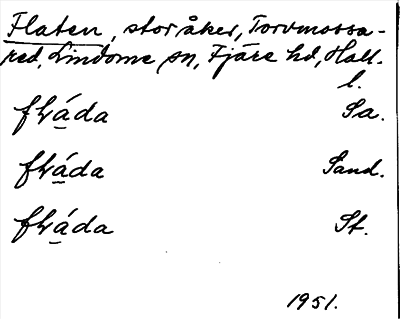 Flaten, stor åker, Torvmossa-
red, Lindome sn, Fjäre hd, Hall.
l.
fláda Sa.
fláda Sand.
fláda St.
1951.